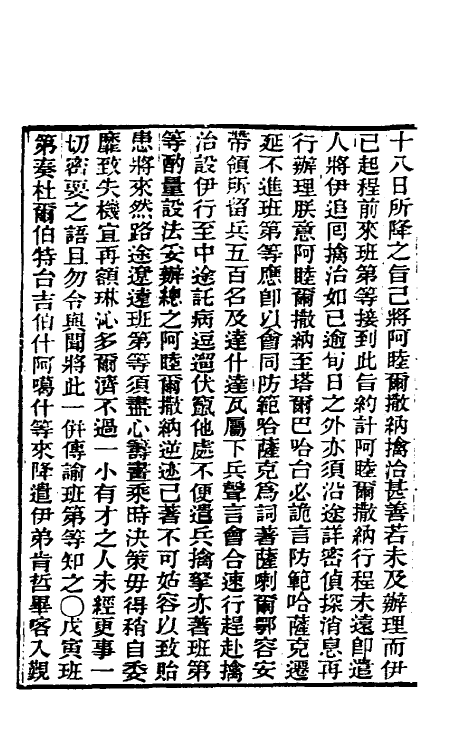 十八日所降之旨已將阿睦爾撒納擒治甚善若未及辦理而伊
已起程前來班第等接到此旨約計阿睦爾撒納行程未遠卽遣
人將伊追囘擒治如已逾旬日之外亦須沿途詳密偵探消息再
行辦理朕意阿睦爾撒納至塔爾巴哈台必詭言防範哈薩克遷
延不進班第等應卽以會同防範哈薩克爲詞著薩喇爾鄂容安
帶領所留兵五百名及達什達瓦屬下兵聲言會合速行趕赴擒
治設伊行至中途託病逗遛伏竄他處不便遣兵擒拏亦著班第
等酌量設法妥辦總之阿睦爾撒納逆迹已著不可姑容以致貽
患將來然路途遼遠班第等須盡心籌畫乘時決策毋得稍自委
靡致失機宜再額琳沁多爾濟不過一小有才之人未經更事一
切密要之語且勿令與聞將此一併傳諭班第等知之○戊寅班
第奏杜爾伯特台吉伯什阿噶什等來降遣伊弟肯哲畢喀入覲